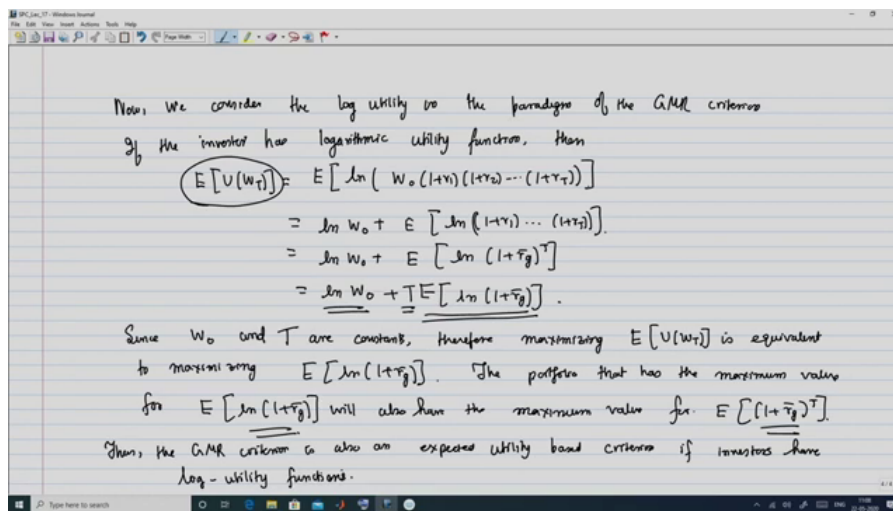 SPC_Lec_17 - Windows Journal
File Edit View Insert Actions Tools Help
Page Width
Now, we consider the log utility in the paradigm of the GMR criterion
If the investor has logarithmic utility function, then
E[U(W_T)] = E[ln(W_0(1+r_1)(1+r_2)···(1+r_T))]
= ln W_0 + E[ln((1+r_1)···(1+r_T))].
= ln W_0 + E[ln(1+r̄_g)^T]
= ln W_0 + T E[ln(1+r̄_g)].
Since W_0 and T are constants, therefore maximizing E[U(W_T)] is equivalent
to maximizing E[ln(1+r̄_g)]. The portfolio that has the maximum value
for E[ln(1+r̄_g)] will also have the maximum value for E[(1+r̄_g)^T].
Thus, the GMR criterion is also an expected utility based criterion if investors have
log-utility functions.
4/4
Type here to search
ENG
11:08
22-05-2020